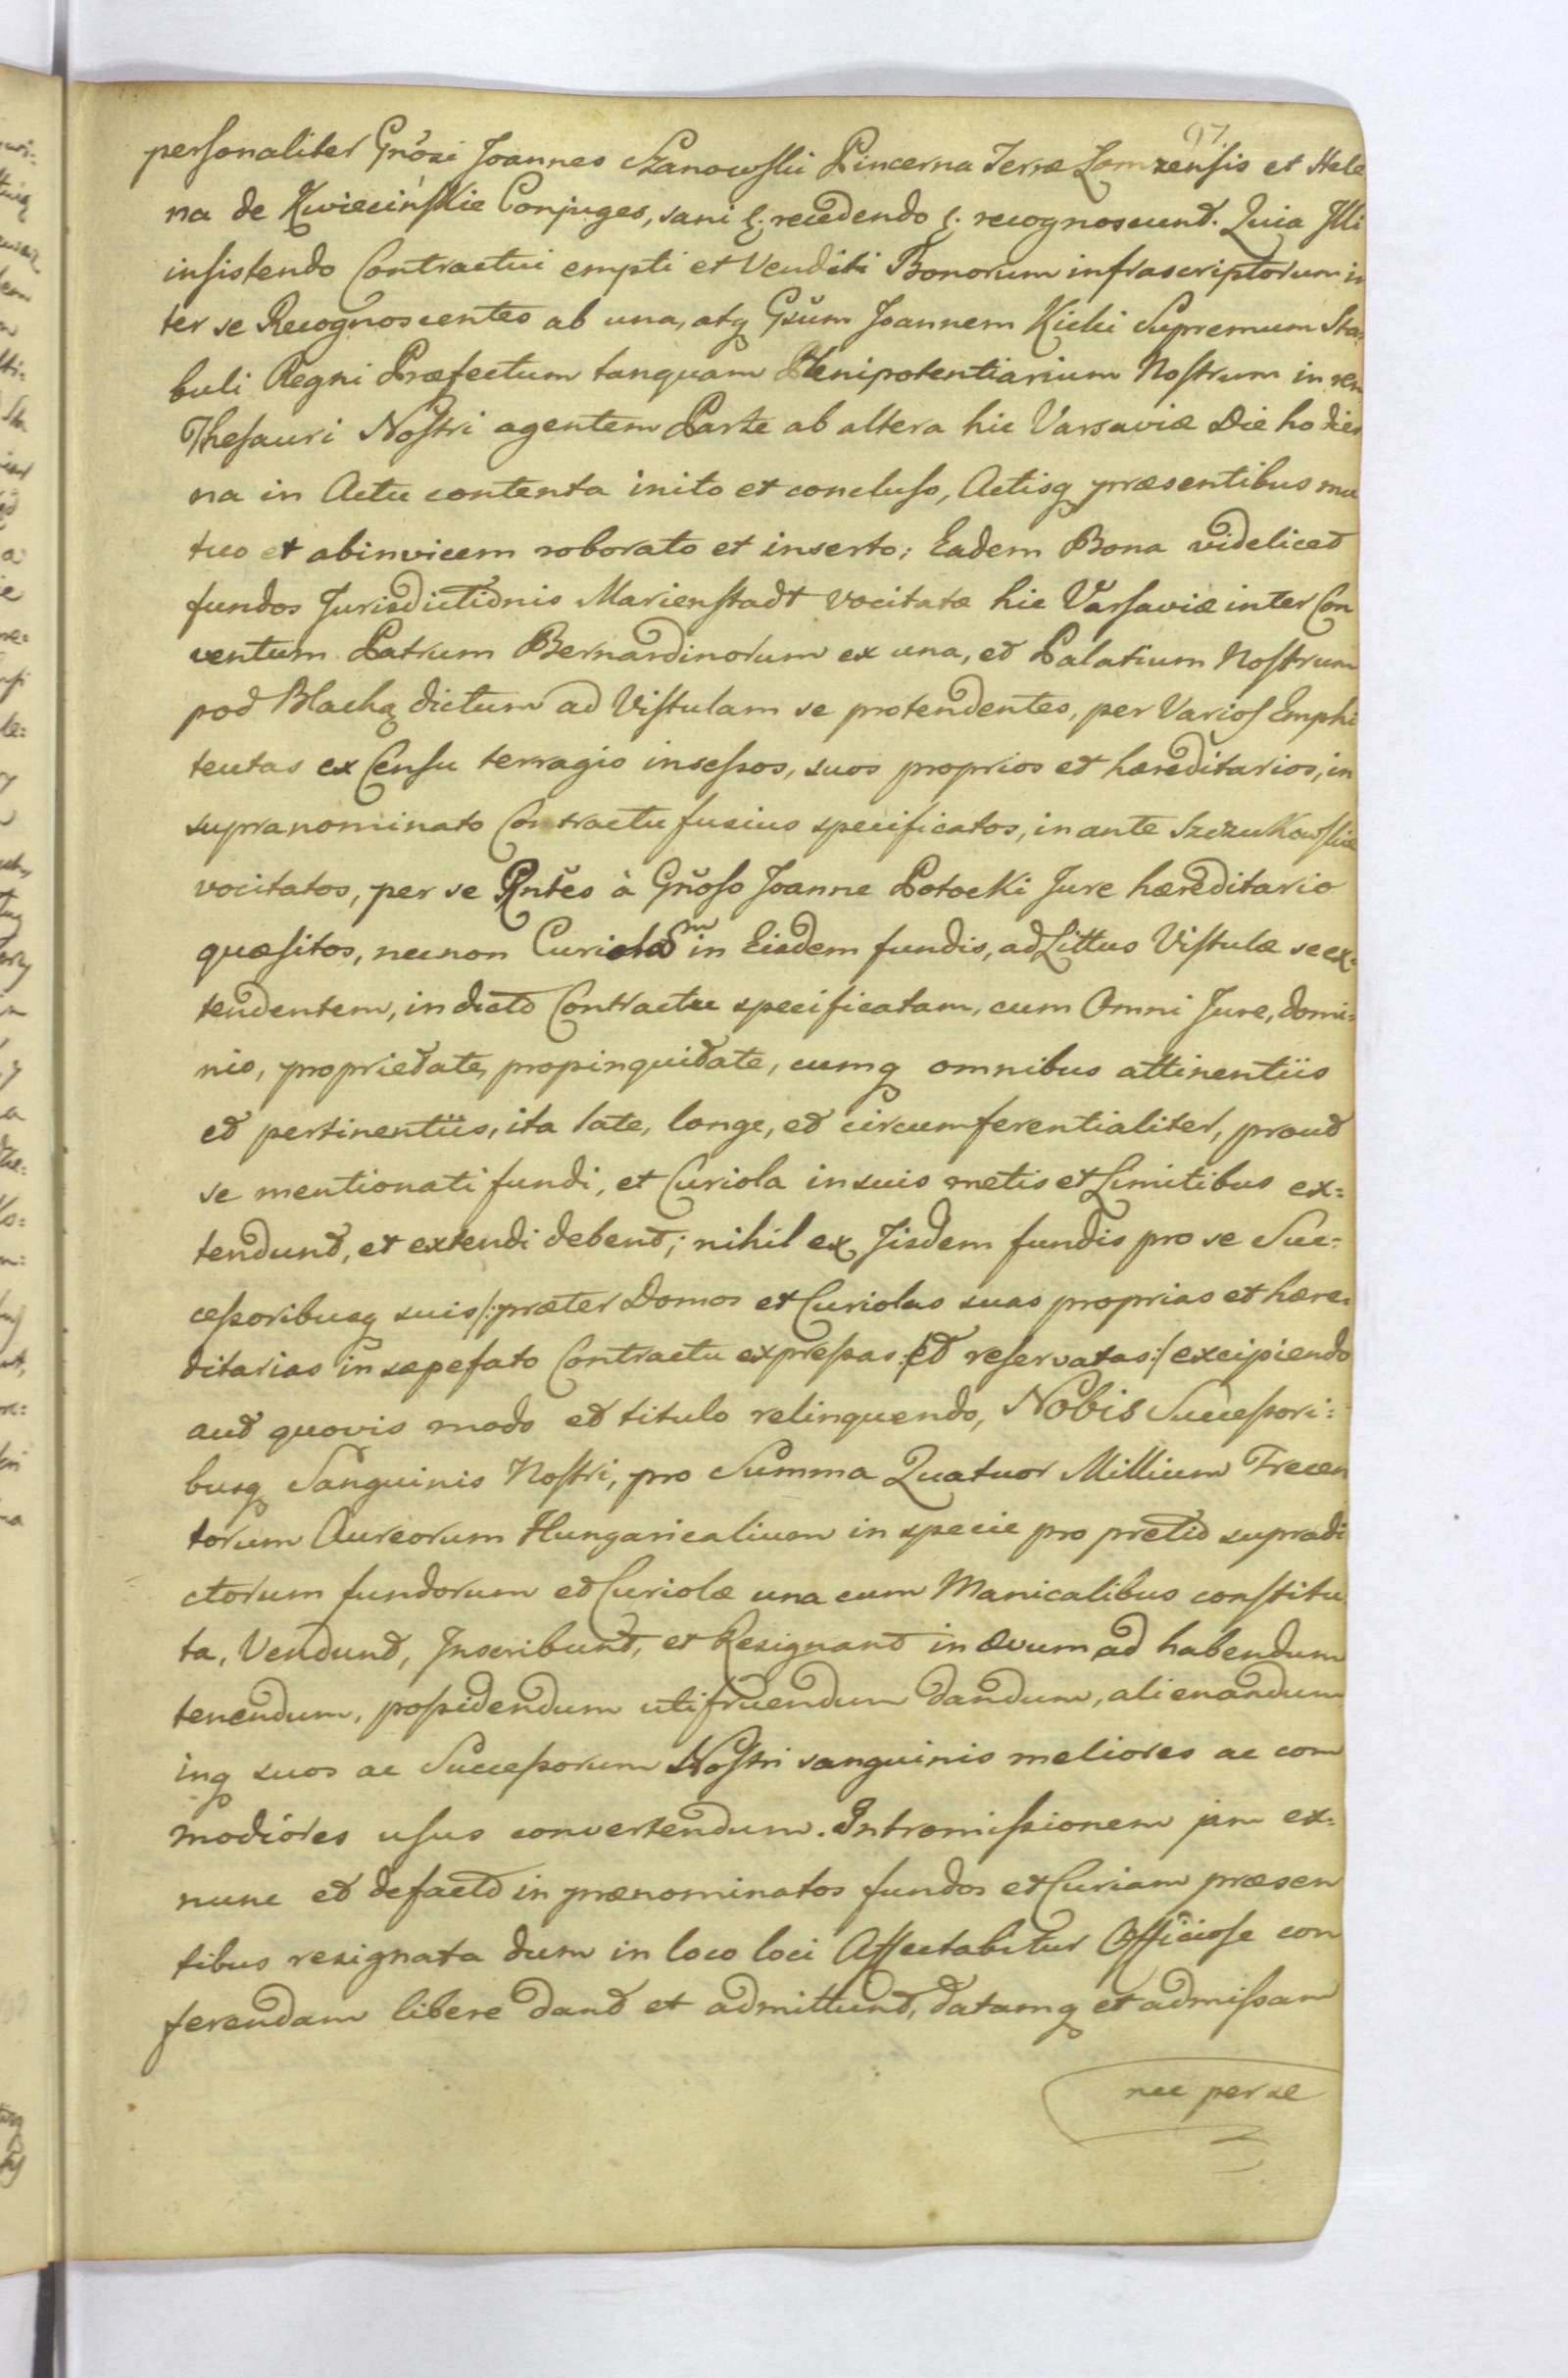 97
personaliter Gnősi Joannes Szanowski Pincerna Terræ Łomzensis et Hele
na de Kwiecińskie Conjuges, sani &. recedendo &. recognoscunt. Quia Illi
insistendo Contractui empti et Venditi Bonorum infrascriptorum in
ter se Recognoscentes ab una, atq Gsŭm Joannem Kicki Supremum Sta:
buli Regni Præfectum tanquam Plenipotentiarium Nostrum in rem
Thesauri Nostri agentem Parte ab altera hic Varsaviæ Die hodier
na in Actu contenta inito et concluso, Actisq præsentibus mu
tuo et abinvicem roborato et inserto; Eadem Bona videlicet
fundos Jurisdictionis Marienstadt vocitatæ hic Varsaviæ inter Con
ventum Patrum Bernardinorum ex una, et Palatium Nostrum
pod Blachą dictum ad Vistulam se protendentes, per Varios Emphi
teutas ex Censu terragio insessos, suos proprios et hæreditarios, in
supranominato Contractu fusius specificatos, in ante Szczukowskie
vocitatos, per se Rntĕs à Gnŏso Joanne Potocki Jure hæreditario
quæsitos, necnon Curiolam in Eisdem fundis, ad Littus Vistulæ se ex=
tendentem, in dicto Contractu specificatam, cum Omni Jure, domi=
nio, proprietate, propinquitate, cumq omnibus attinentiis
et pertinentiis, ita late, longe, et circumferentialiter, prout
se mentionati fundi, et Curiola in suis metis et Limitibus ex=
tendunt, et extendi debent; nihil ex Iisdem fundis pro se Suc=
cessoribusq suis /: præter Domos et Curiolas suas proprias et hære=
ditarias in sæpefato Contractu expressas et reservatas :/ excipiendo
aut quovis modo et titulo relinquendo, Nobis Successori=
busq Sanguinis Nostri, pro Summa Quatuor Millium Trecen
torum Aureorum Hungaricalium in specie pro pretio supradi
ctorum fundorum et Curiolæ una cum Manicalibus constitu
ta, Vendunt, Inscribunt, et Resignant in ævum ad habendum
tenendum, possidendum utifruendum dandum, alienandum
inq suos ac Successorum Nostri sanguinis meliores ac com
modiores usus convertendum. Intromissionem jam ex=
nunc et defacto in prænominatos fundos et Curiam præsen
tibus resignata dum in loco loci Affectabitur Officiose con
ferendam libere dant et admittunt, datamq et admissam
nec per se